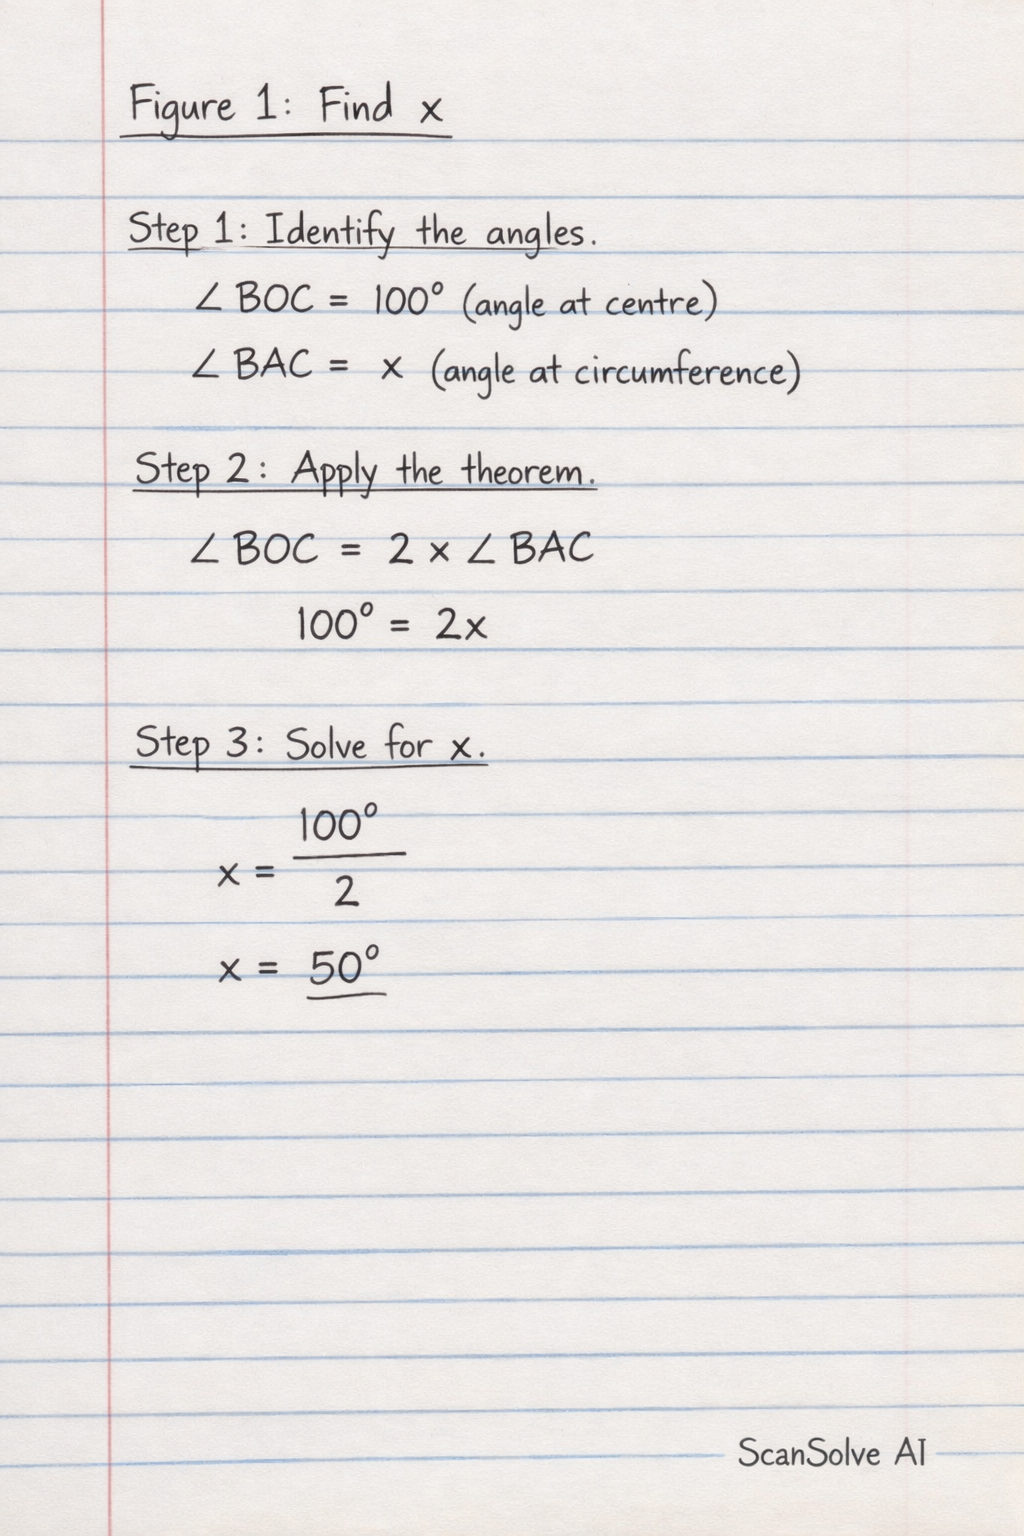 Figure 1: Find x
Step 1: Identify the angles.
∠ BOC = 100° (angle at centre)
∠ BAC = x (angle at circumference)
Step 2: Apply the theorem.
∠ BOC = 2 × ∠ BAC
100° = 2x
Step 3: Solve for x.
x = 100° / 2
x = 50°
ScanSolve AI